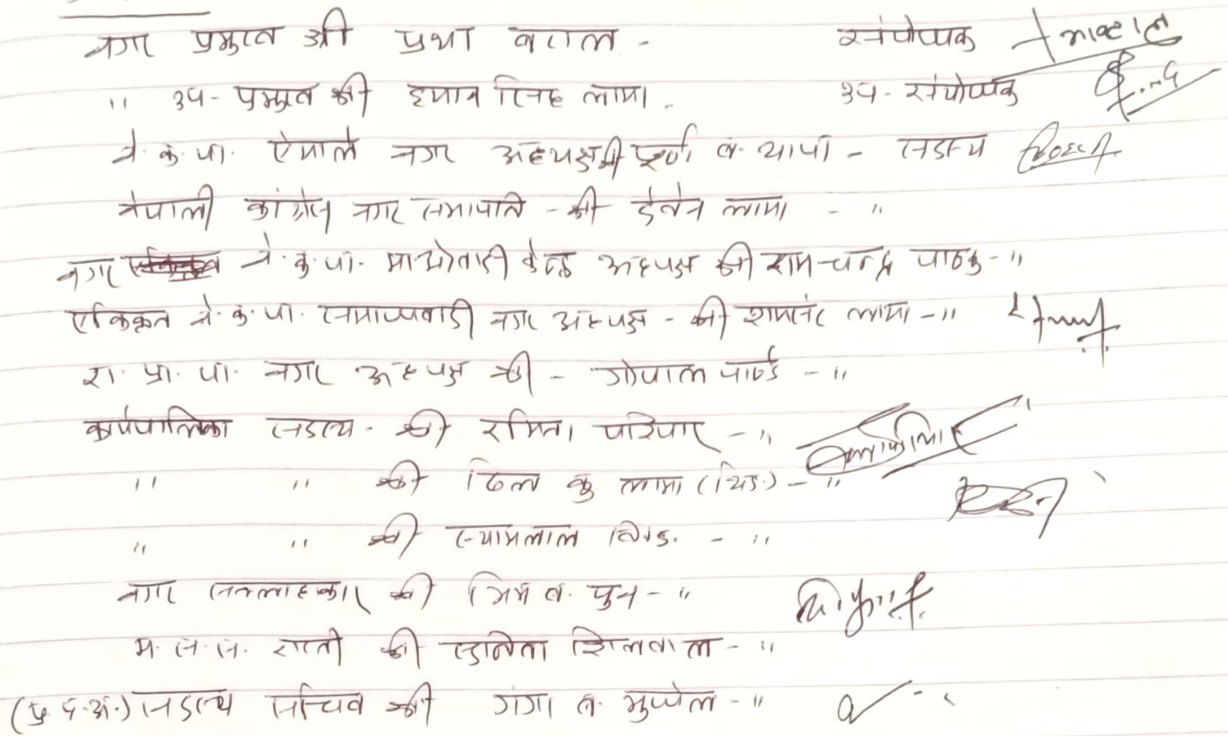 नगर प्रमुख श्री प्रभा बराल - संयोजक
" उप-प्रमुख श्री हयात सिंह लामा - उप-संयोजक
ने.क.पा. ऐमाले नगर अध्यक्ष श्री पूर्ण ब. थापा - सदस्य
नेपाली कांग्रेस नगर सभापति - श्री लामा - "
नगर ने.क.पा. माओवादी केन्द्र अध्यक्ष श्री रामचन्द्र पाठक - "
एकिकृत ने.क.पा. समाजवादी नगर अध्यक्ष - श्री लामा - "
रा. प्र. पा. नगर अध्यक्ष श्री - गोपाल पाण्डे - "
कार्यपालिका सदस्य - श्री रमिता परियार - "
" " श्री दिल कु लामा (थिङ) - "
" " श्री श्यामलाल थिङ. - "
नगर सल्लाहकार श्री भिम ब. पुन - "
म. स. स. श्री ललिता सिलवाल - "
(प्र. प्र. अ.) सदस्य सचिव श्री गंगा ब. भुजेल - "